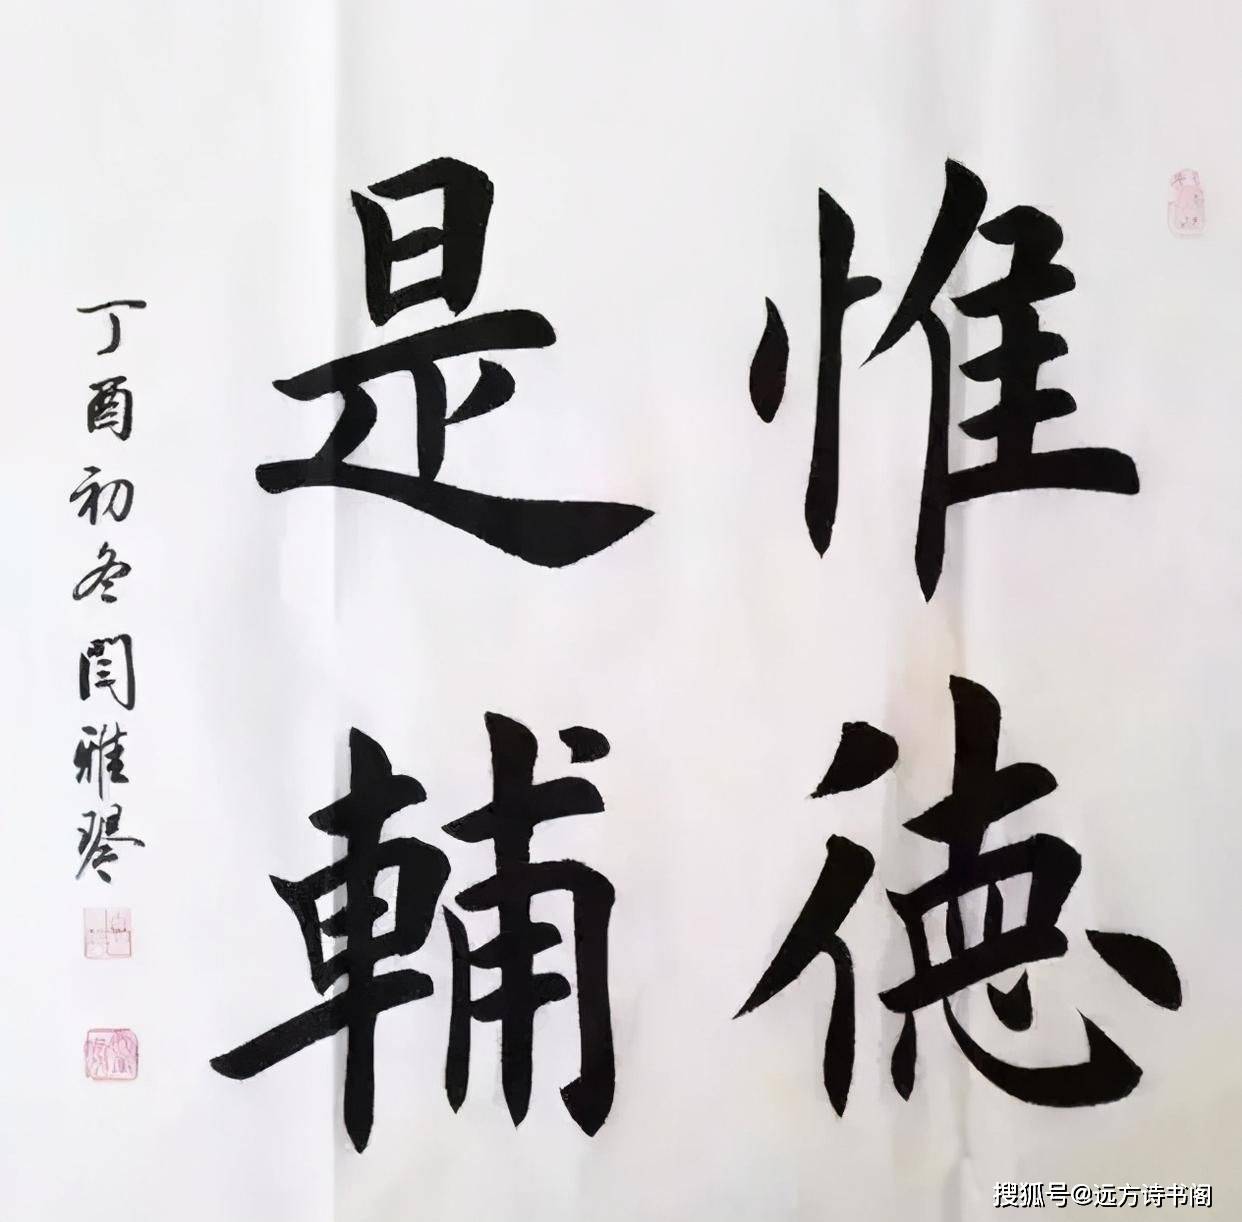 惟德
是輔
丁酉初冬閆雅琴
搜狐号@远方诗书阁